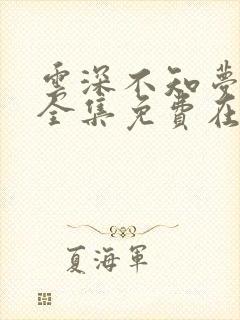 雲深不知夢
全集免費在
夏海軍